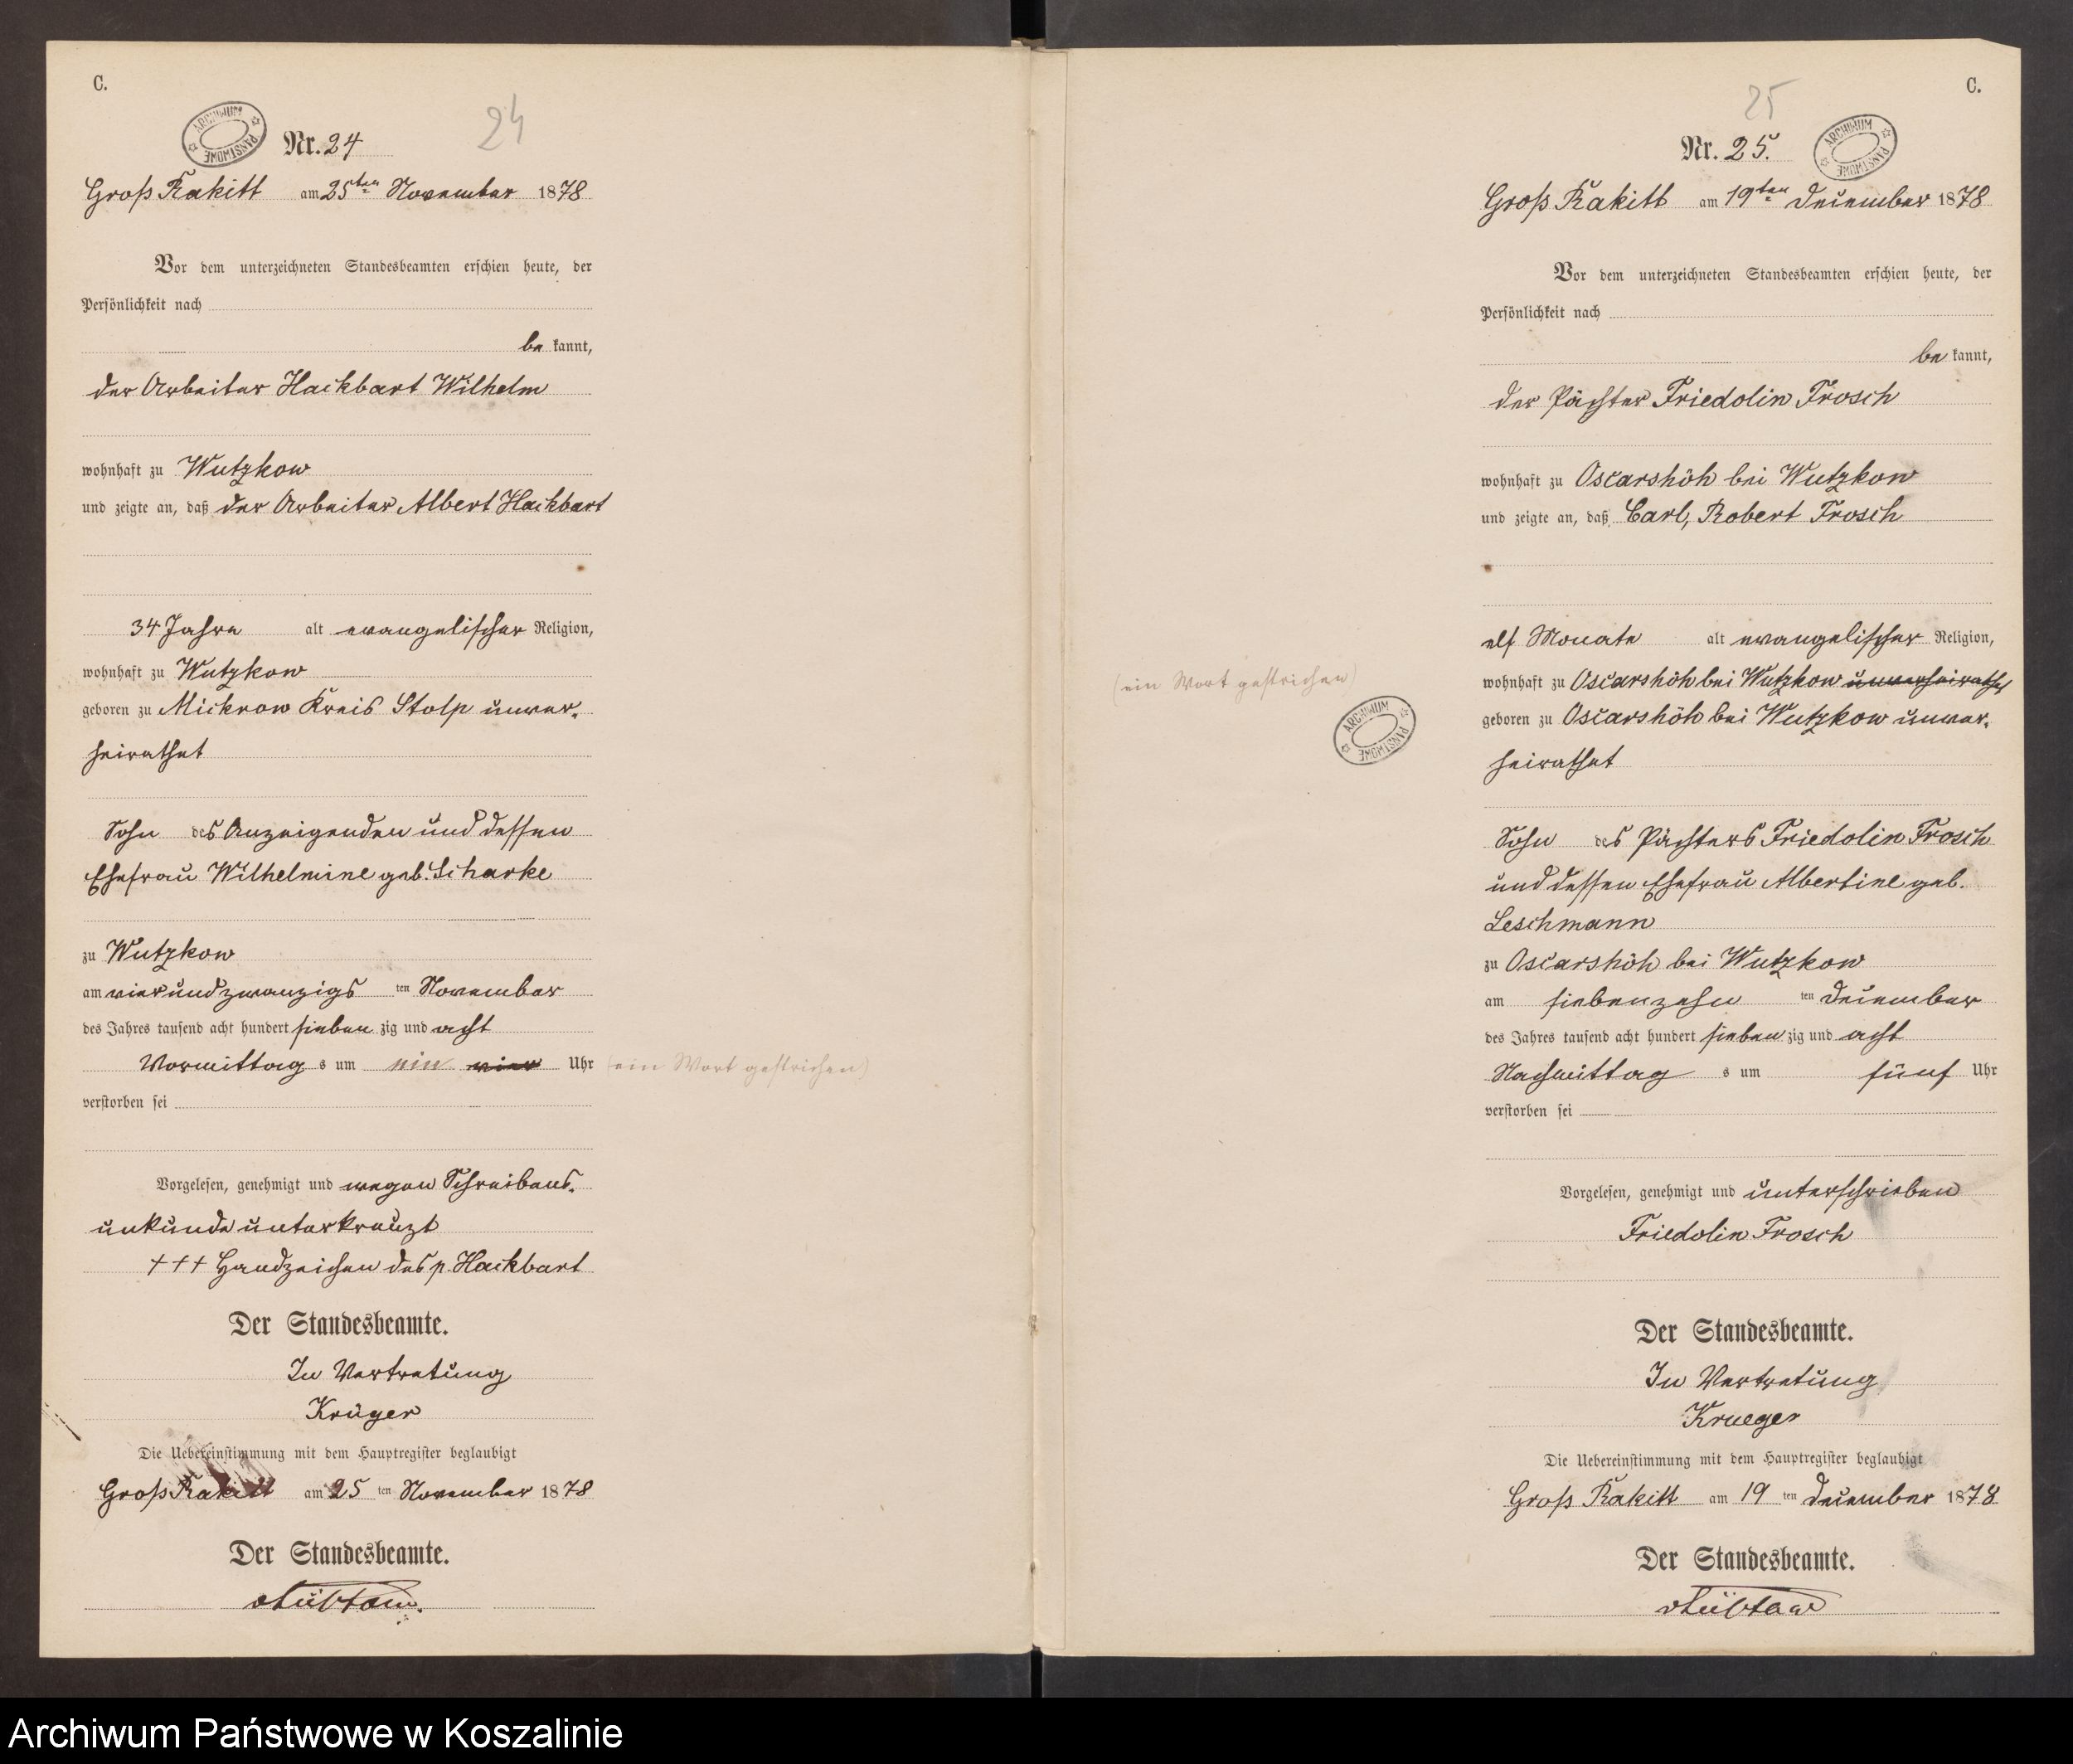 C.
ARCHIWUM PAŃSTWOWE
Nr. 24
24
Groß Rakitt am 25ten November 1878
Vor dem unterzeichneten Standesbeamten erschien heute, der
Persönlichkeit nach
be kannt,
der Arbeiter Hackbart Wilhelm
wohnhaft zu Wutzkow
und zeigte an, daß der Arbeiter Albert Hackbart
34 Jahre alt evangelischer Religion,
wohnhaft zu Wutzkow
geboren zu Mickrow Kreis Stolp unver-
heirathet
Sohn des Anzeigenden und dessen
Ehefrau Wilhelmine geb. Scharke
zu Wutzkow
am vierundzwanzigs ten November
des Jahres tausend acht hundert sieben zig und acht
Vormittag s um ein vier Uhr (ein Wort gestrichen)
verstorben sei
Vorgelesen, genehmigt und wegen Schreibens-
unkunde unterkreuzt
+++ Handzeichen des p. Hackbart
Der Standesbeamte.
In Vertretung
Krüger
Die Uebereinstimmung mit dem Hauptregister beglaubigt
Groß Rakitt am 25 ten November 1878
Der Standesbeamte.
C.
25
Nr. 25.
ARCHIWUM PAŃSTWOWE
Groß Rakitt am 19ten December 1878
Vor dem unterzeichneten Standesbeamten erschien heute, der
Persönlichkeit nach
be kannt,
der Pächter Friedolin Frosch
wohnhaft zu Oscarshöh bei Wutzkow
und zeigte an, daß Carl, Robert Frosch
elf Monate alt evangelischer Religion,
(ein Wort gestrichen)
wohnhaft zu Oscarshöh bei Wutzkow unverheirathet
ARCHIWUM PAŃSTWOWE
geboren zu Oscarshöh bei Wutzkow unver-
heirathet
Sohn des Pächters Friedolin Frosch
und dessen Ehefrau Albertine geb.
Leschmann
zu Oscarshöh bei Wutzkow
am siebenzehn ten December
des Jahres tausend acht hundert sieben zig und acht
Nachmittag s um fünf Uhr
verstorben sei
Vorgelesen, genehmigt und unterschrieben
Friedolin Frosch
Der Standesbeamte.
In Vertretung
Krueger
Die Uebereinstimmung mit dem Hauptregister beglaubigt
Groß Rakitt am 19 ten December 1878
Der Standesbeamte.
Archiwum Państwowe w Koszalinie